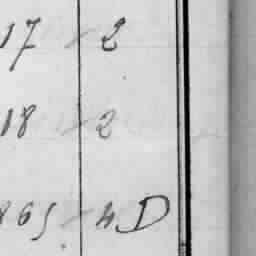 17 2
18 2
865 4 D